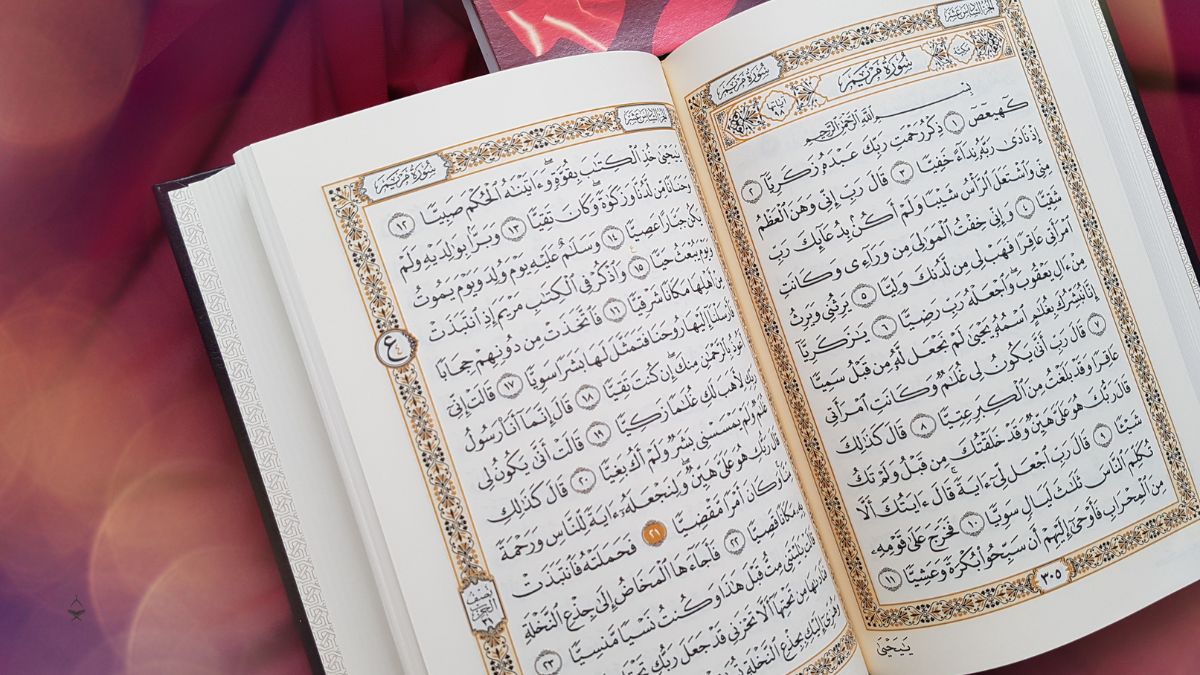 الجزء السادس عشر
سُورَةُ مَرْيَمَ
سُورَةُ مَرْيَمَ
بِسْمِ ٱللَّهِ ٱلرَّحْمَٰنِ ٱلرَّحِيمِ
كٓهيعٓصٓ ١ ذِكْرُ رَحْمَتِ رَبِّكَ عَبْدَهُۥ زَكَرِيَّآ ٢
إِذْ نَادَىٰ رَبَّهُۥ نِدَآءً خَفِيًّا ٣ قَالَ رَبِّ إِنِّى وَهَنَ ٱلْعَظْمُ
مِنِّى وَٱشْتَعَلَ ٱلرَّأْسُ شَيْبًا وَلَمْ أَكُنۢ بِدُعَآئِكَ رَبِّ
شَقِيًّا ٤ وَإِنِّى خِفْتُ ٱلْمَوَٰلِىَ مِن وَرَآءِى وَكَانَتِ
ٱمْرَأَتِى عَاقِرًا فَهَبْ لِى مِن لَّدُنكَ وَلِيًّا ٥ يَرِثُنِى وَيَرِثُ
مِنْ ءَالِ يَعْقُوبَ وَٱجْعَلْهُ رَبِّ رَضِيًّا ٦ يَٰزَكَرِيَّآ
إِنَّا نُبَشِّرُكَ بِغُلَٰمٍ ٱسْمُهُۥ يَحْيَىٰ لَمْ نَجْعَل لَّهُۥ مِن قَبْلُ سَمِيًّا
٧ قَالَ رَبِّ أَنَّىٰ يَكُونُ لِى غُلَٰمٌ وَكَانَتِ ٱمْرَأَتِى
عَاقِرًا وَقَدْ بَلَغْتُ مِنَ ٱلْكِبَرِ عِتِيًّا ٨ قَالَ كَذَٰلِكَ
قَالَ رَبُّكَ هُوَ عَلَىَّ هَيِّنٌ وَقَدْ خَلَقْتُكَ مِن قَبْلُ وَلَمْ تَكُ
شَيْـًٔا ٩ قَالَ رَبِّ ٱجْعَل لِّىٓ ءَايَةً قَالَ ءَايَتُكَ أَلَّا
تُكَلِّمَ ٱلنَّاسَ ثَلَٰثَ لَيَالٍ سَوِيًّا ١٠ فَخَرَجَ عَلَىٰ قَوْمِهِۦ
مِنَ ٱلْمِحْرَابِ فَأَوْحَىٰٓ إِلَيْهِمْ أَن سَبِّحُوا۟ بُكْرَةً وَعَشِيًّا ١١
٣٠٥
يَٰيَحْيَىٰ
الجزء السادس عشر
سُورَةُ مَرْيَمَ
يَٰيَحْيَىٰ خُذِ ٱلْكِتَٰبَ بِقُوَّةٍ وَءَاتَيْنَٰهُ ٱلْحُكْمَ صَبِيًّا ١٢
وَحَنَانًا مِّن لَّدُنَّا وَزَكَوٰةً وَكَانَ تَقِيًّا ١٣ وَبَرًّۢا بِوَٰلِدَيْهِ وَلَمْ
يَكُن جَبَّارًا عَصِيًّا ١٤ وَسَلَٰمٌ عَلَيْهِ يَوْمَ وُلِدَ وَيَوْمَ يَمُوتُ
وَيَوْمَ يُبْعَثُ حَيًّا ١٥ وَٱذْكُرْ فِى ٱلْكِتَٰبِ مَرْيَمَ إِذِ ٱنتَبَذَتْ
مِنْ أَهْلِهَا مَكَانًا شَرْقِيًّا ١٦ فَٱتَّخَذَتْ مِن دُونِهِمْ حِجَابًا
فَأَرْسَلْنَآ إِلَيْهَا رُوحَنَا فَتَمَثَّلَ لَهَا بَشَرًا سَوِيًّا ١٧ قَالَتْ إِنِّىٓ
أَعُوذُ بِٱلرَّحْمَٰنِ مِنكَ إِن كُنتَ تَقِيًّا ١٨ قَالَ إِنَّمَآ أَنَا۠ رَسُولُ
رَبِّكِ لِأَهَبَ لَكِ غُلَٰمًا زَكِيًّا ١٩ قَالَتْ أَنَّىٰ يَكُونُ لِى
غُلَٰمٌ وَلَمْ يَمْسَسْنِى بَشَرٌ وَلَمْ أَكُ بَغِيًّا ٢٠ قَالَ كَذَٰلِكِ
قَالَ رَبُّكِ هُوَ عَلَىَّ هَيِّنٌ وَلِنَجْعَلَهُۥٓ ءَايَةً لِّلنَّاسِ وَرَحْمَةً
مِّنَّا وَكَانَ أَمْرًا مَّقْضِيًّا ٢١ فَحَمَلَتْهُ فَٱنتَبَذَتْ
بِهِۦ مَكَانًا قَصِيًّا ٢٢ فَأَجَآءَهَا ٱلْمَخَاضُ إِلَىٰ جِذْعِ ٱلنَّخْلَةِ
قَالَتْ يَٰلَيْتَنِى مِتُّ قَبْلَ هَٰذَا وَكُنتُ نَسْيًا مَّنسِيًّا ٢٣
فَنَادَىٰهَا مِن تَحْتِهَآ أَلَّا تَحْزَنِى قَدْ جَعَلَ رَبُّكِ
وَهُزِّىٓ إِلَيْكِ بِجِذْعِ ٱلنَّخْلَةِ
ع
نصف
الحزب
٣١